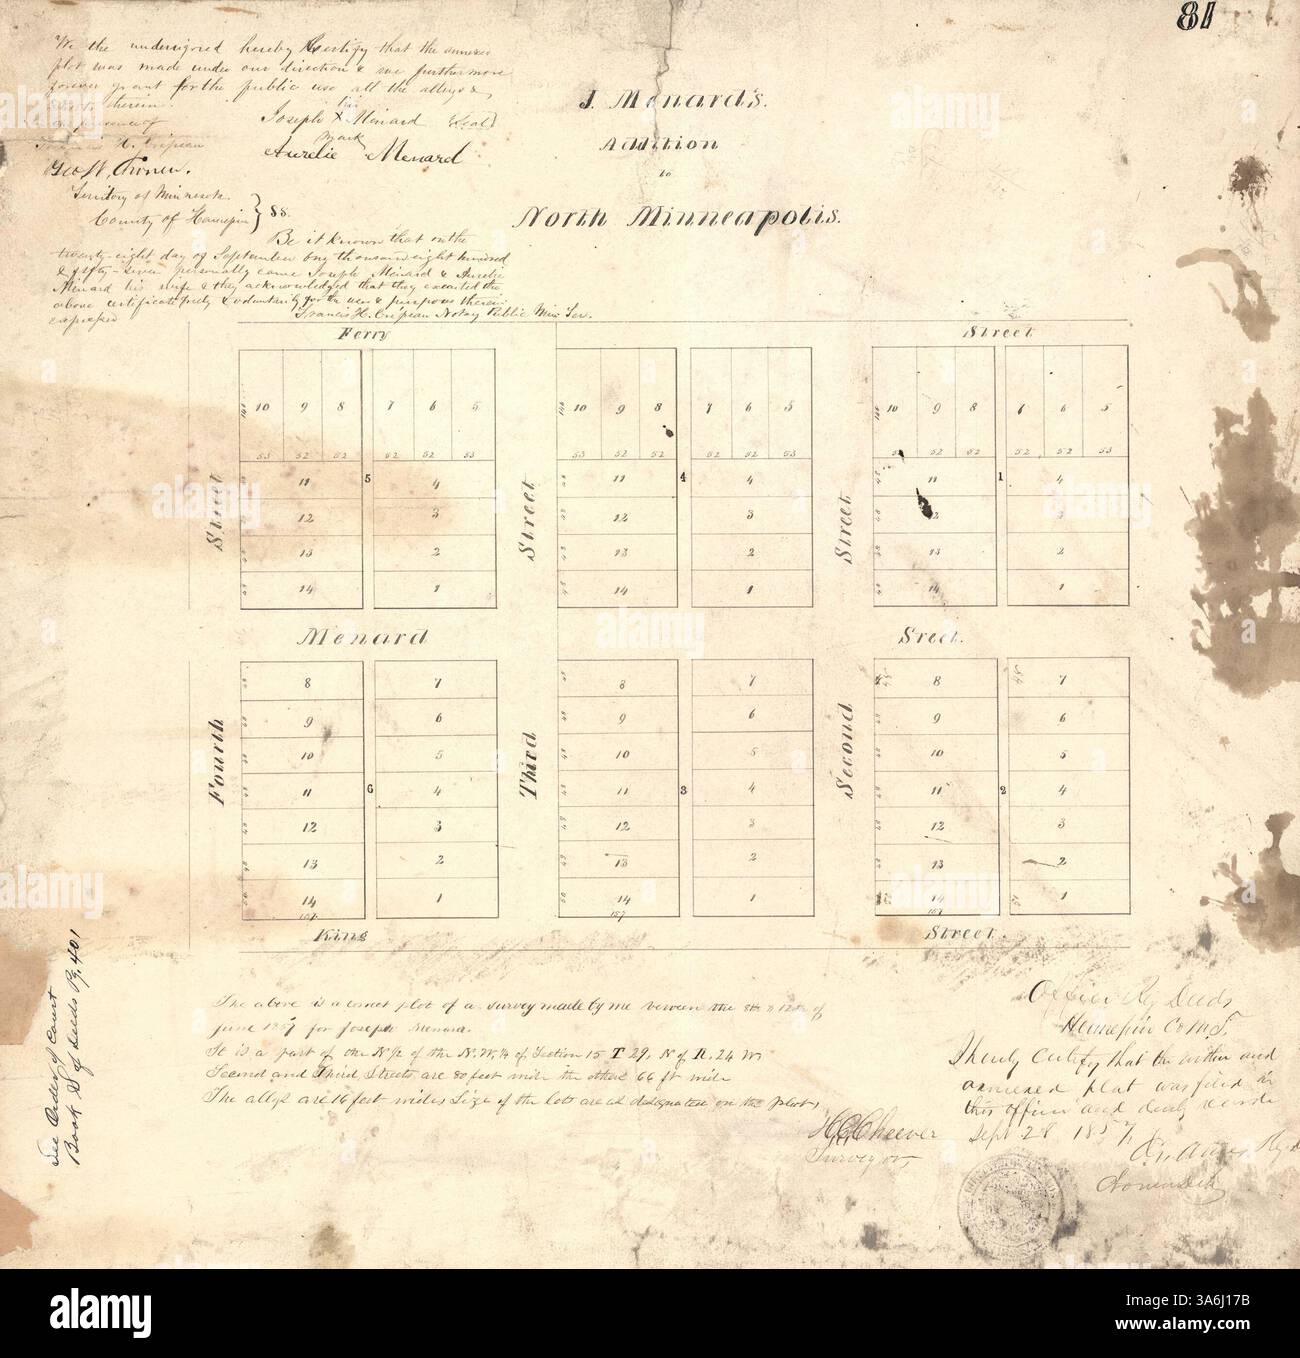 81
We the undersigned hereby Certify that the annexed
plot was made under our direction & we furthermore
forever grant for the public use all the alleys &
therein
In presence of
Joseph his X mark Menard (Seal)
Francis H. Crépeau
Aurelie Menard
Territory of Minnesota
County of Hennepin } SS.
Be it known that on the
twenty-eight day of September one thousand eight hundred
& fifty-seven personally came Joseph Menard & Aurelie
Menard his wife & they acknowledged that they executed the
above certificate freely & voluntarily for the uses & purposes therein
expressed
Francis H. Crépeau Notary Public Min Ter.
J. Menard's.
Addition
to
North Minneapolis.
Ferry Street
10 9 8 7 6 5
53 52 52 52 52 53
11 5 4
12 3
13 2
14 1
10 9 8 7 6 5
53 52 52 52 52 53
11 4 4
12 3
13 2
14 1
10 9 8 7 6 5
52 52 52 52 53
11 1 4
2 3
13 2
14 1
Street
Street
Street
Menard Sreet.
8 7
9 6
10 5
11 6 4
12 3
13 2
14 1
157
8 7
9 6
10 5
11 3 4
12 3
13 2
14 1
157
8 7
9 6
10 5
11 2 4
12 3
13 2
14 1
157
Fourth
Third
Second
King Street.
The above is a correct plot of a survey made by me between the 8th & 12th of
June 1857 for Joseph Menard.
It is a part of the N½ of the N.W.¼ of Section 15 T 29, N of R. 24 W.
Second and Third Streets are 80 feet wide the others 66 ft wide
The alleys are 16 feet wide Size of the lots are as designated on the plot,
H.C. Cheever
Surveyor,
See Order of Court
Book S of Deeds Pg. 401
Office Reg Deeds
Hennepin Co M.T.
I hereby certify that the within and
annexed plat was filed in
this office and duly recorded
Sept 28 1857,
alamy
Image ID: 3A6J17B
www.alamy.com